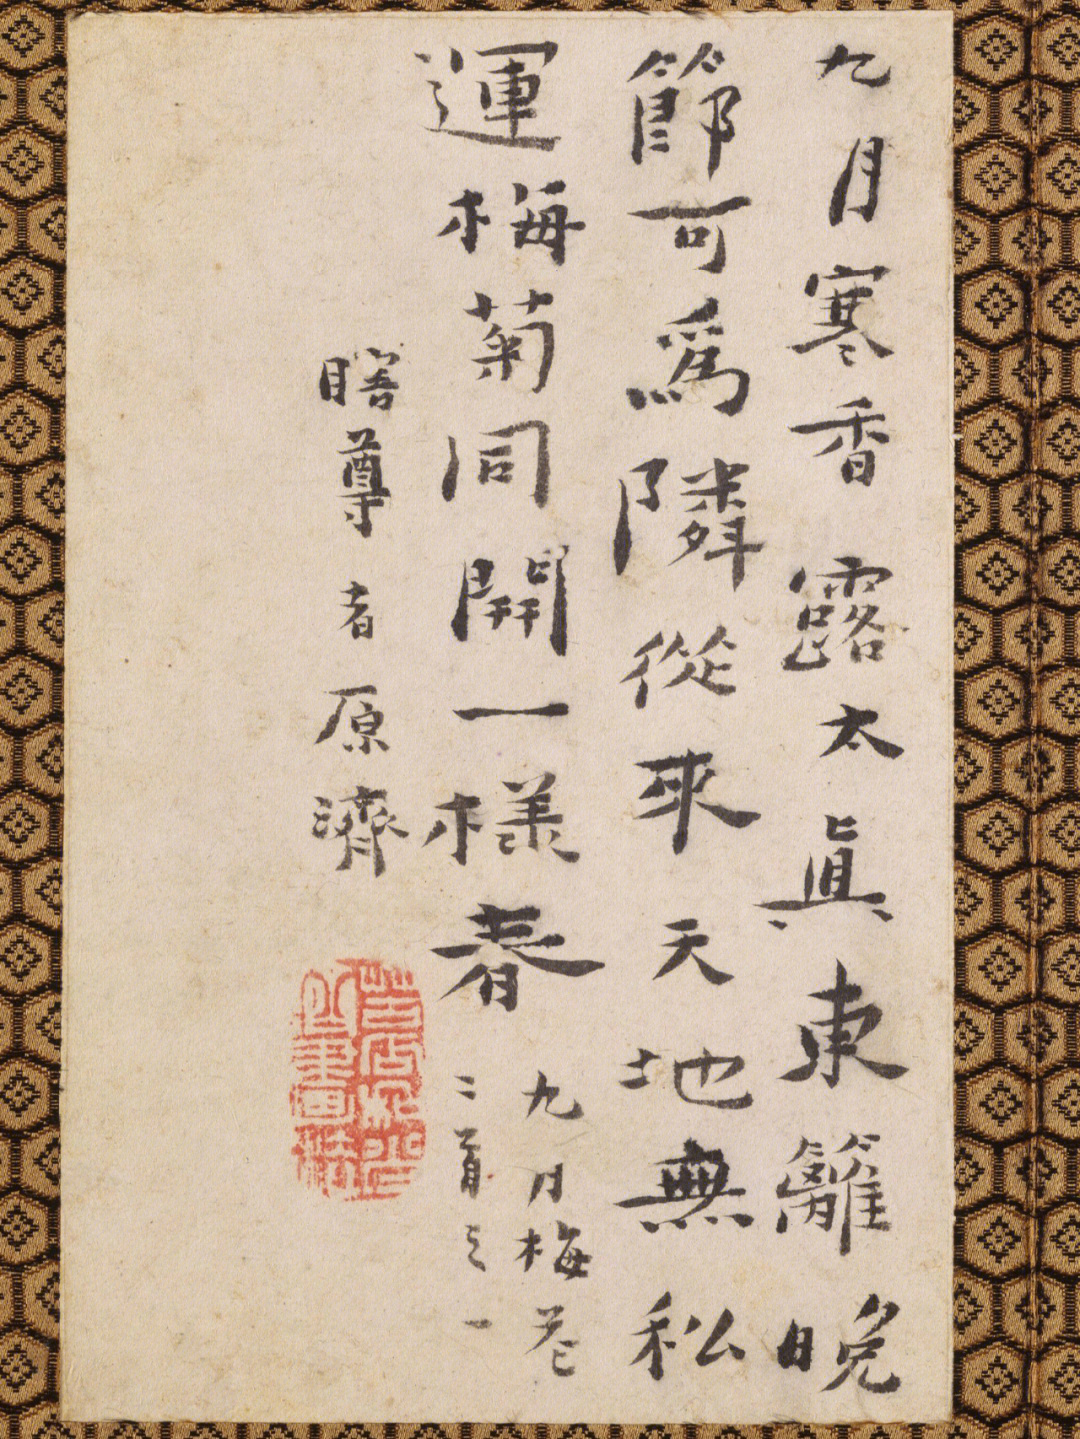 九月寒香露太眞東籬晚
節可爲隣從來天地無私
運梅菊同開一樣春
九月梅花
二首之一
瞎尊者原濟